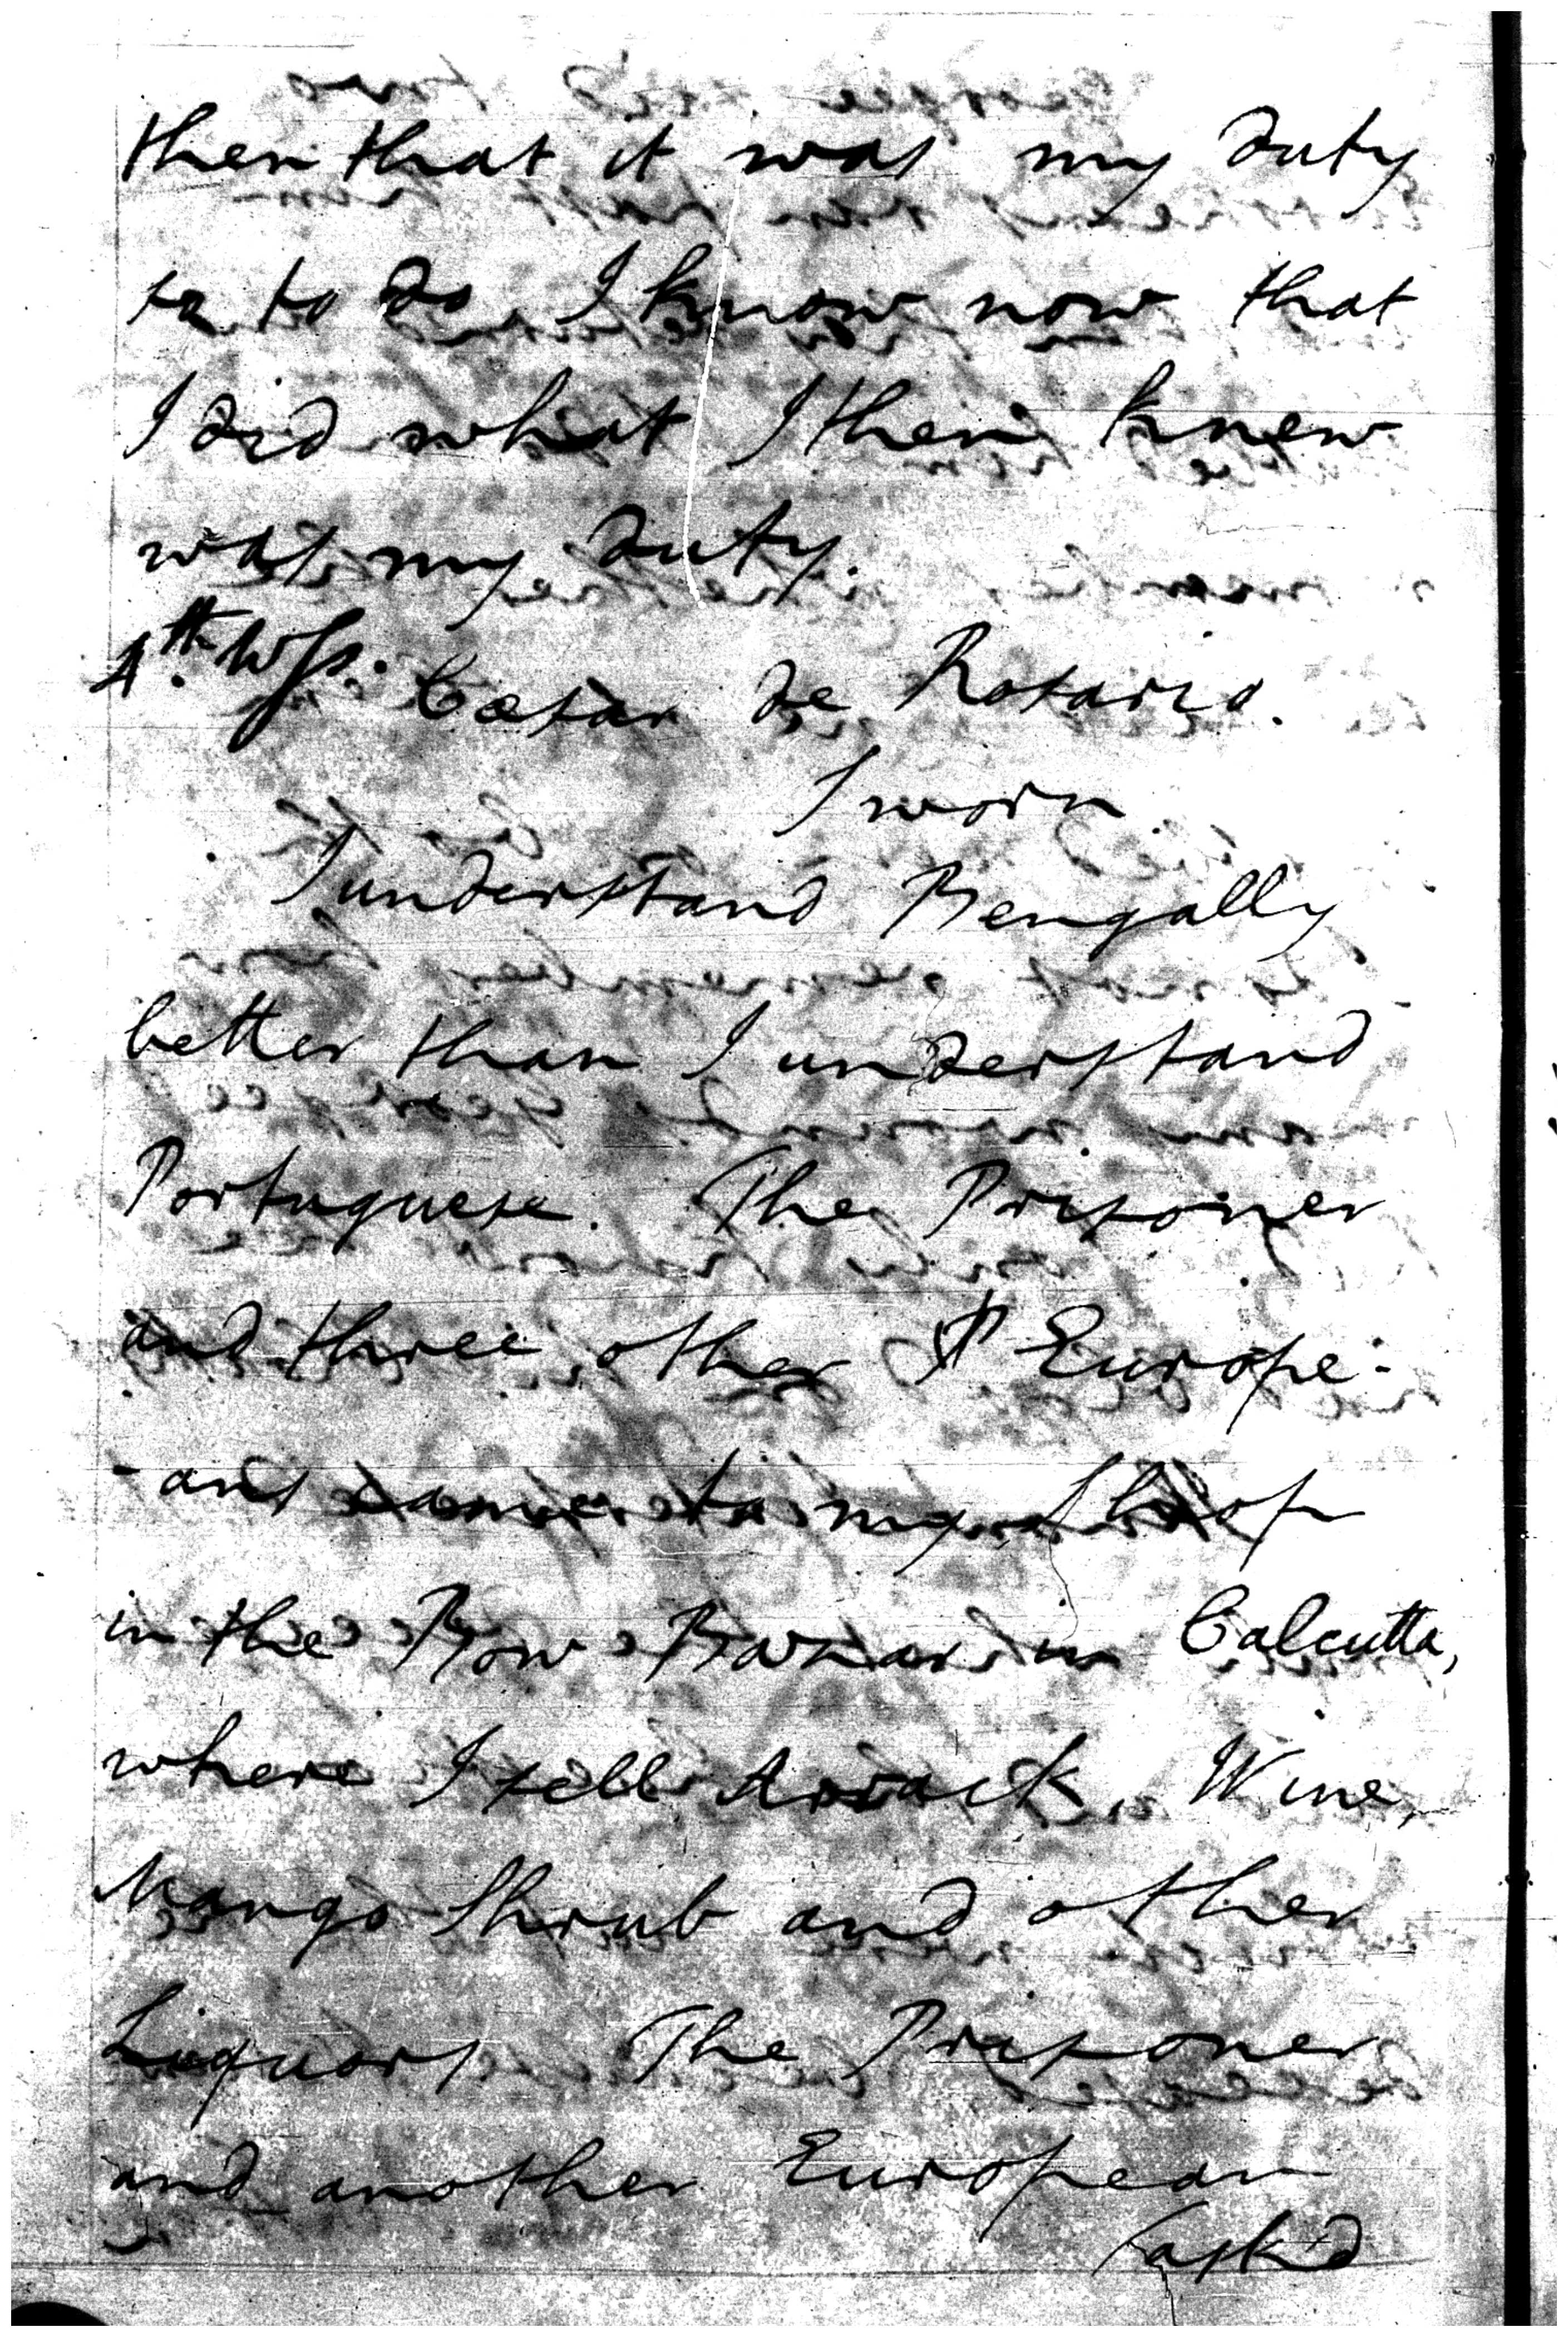 then that it was my duty
so to do I know now that
I did what I then knew
was my duty.
4th. Wss. Cæsar de Rosario.
Sworn.
I understand Bengally
better than I understand
Portuguese. The Prisoner
and three other P Europe-
-ans came to my Shop
in the Bow Bazar in Calcutta,
where I sell Arrack, Wine,
Mango Shrub and other
Liquors The Prisoner
and another European
ask'd